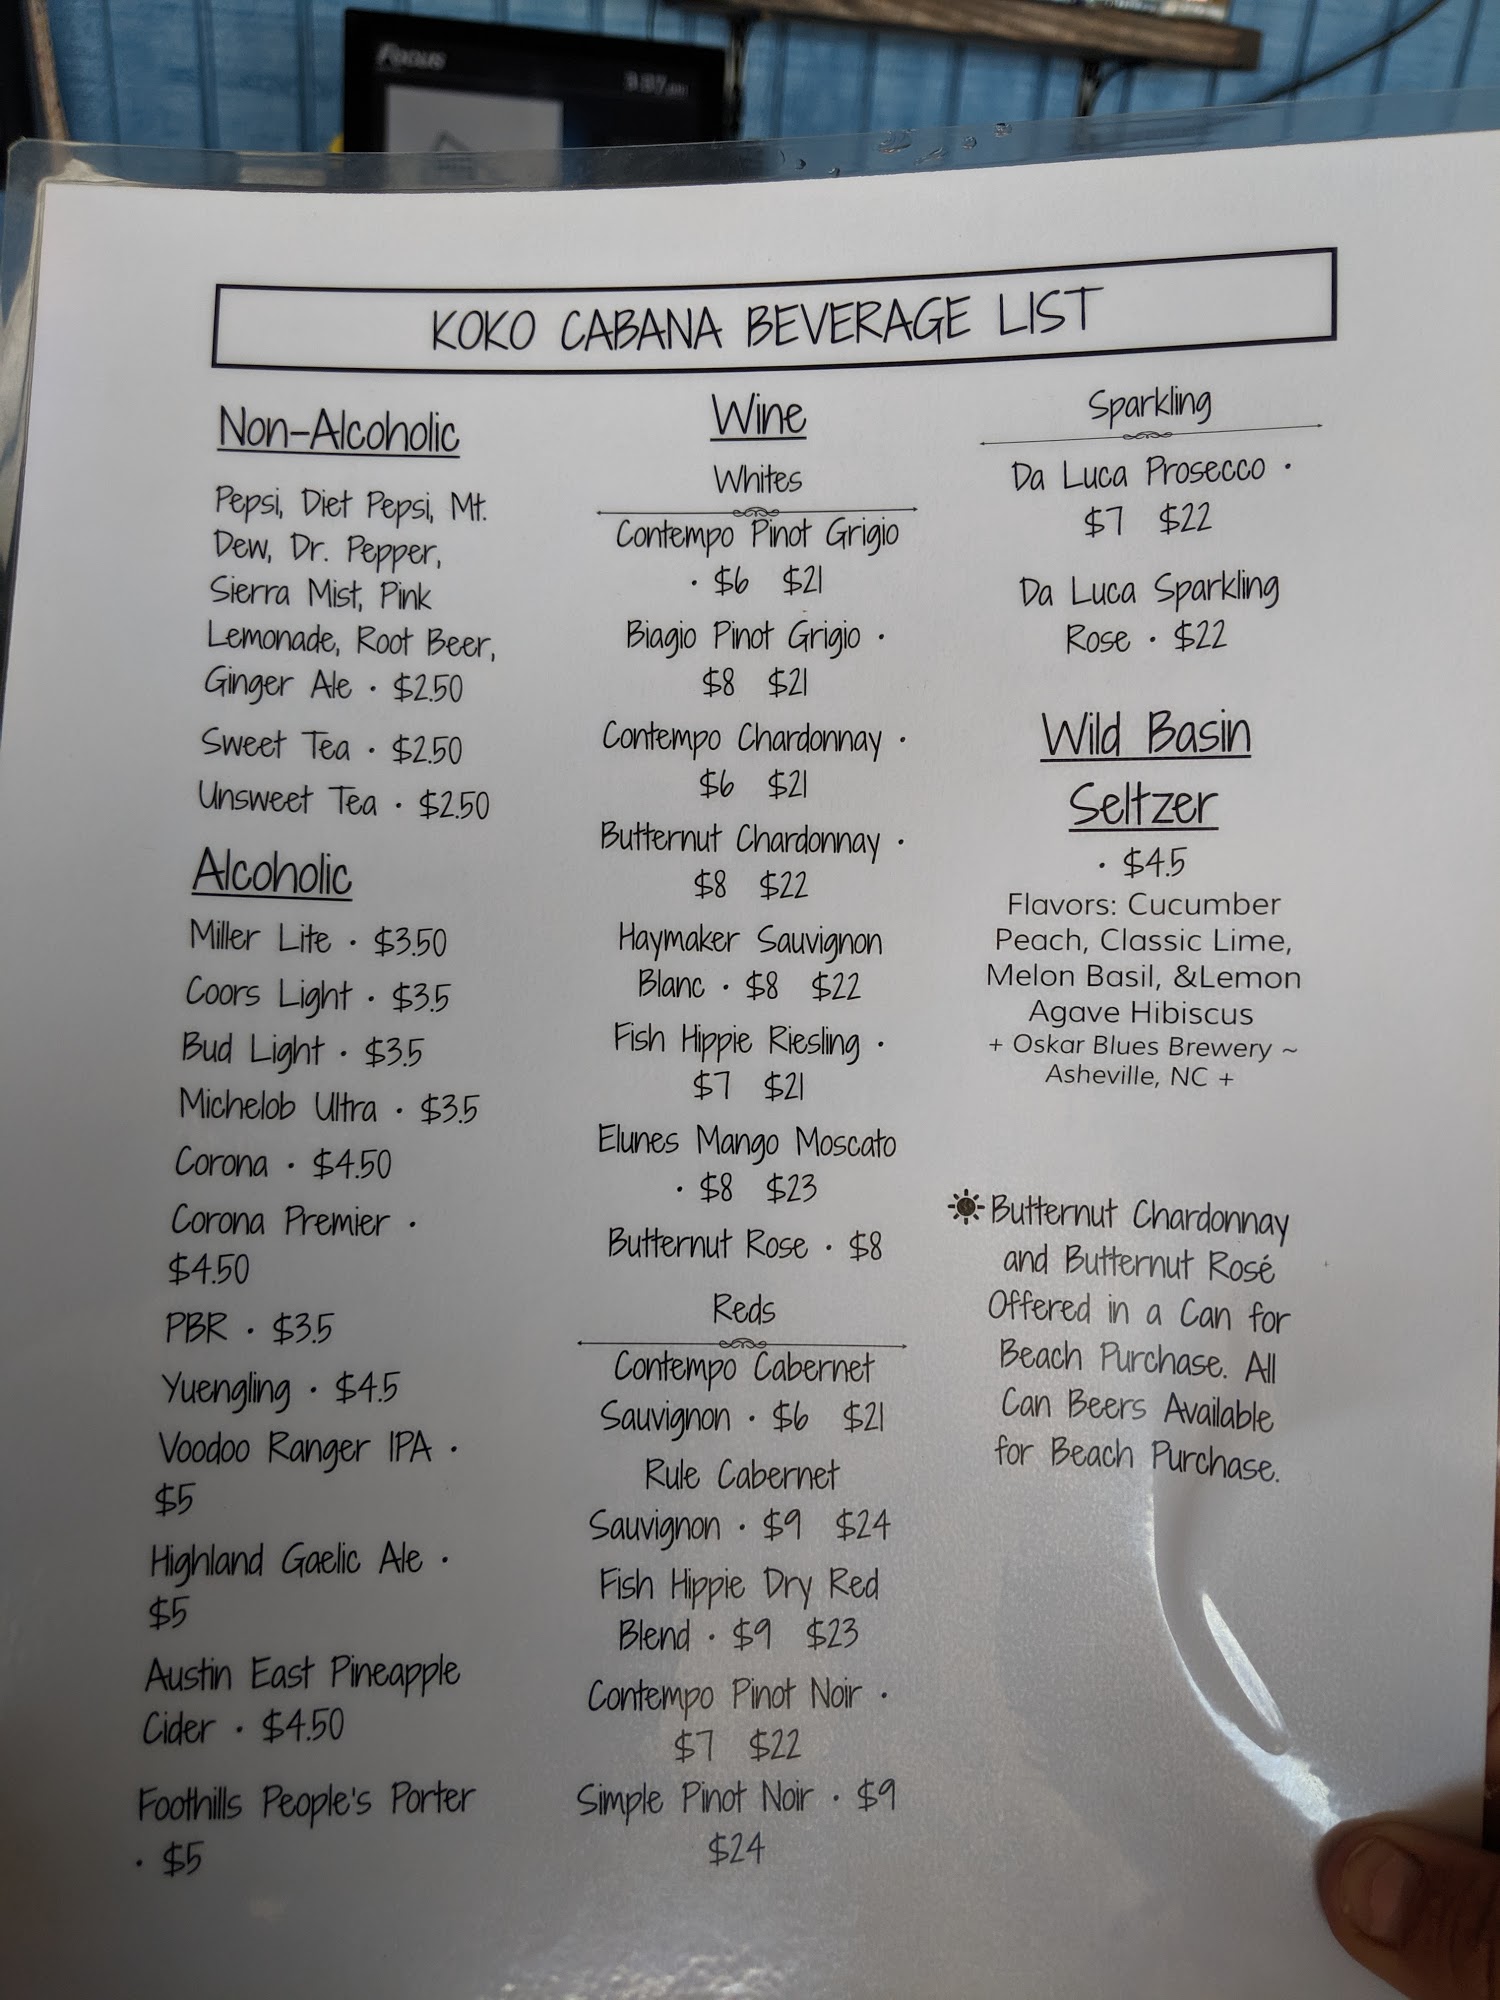 Focus
KOKO CABANA BEVERAGE LIST
Non-Alcoholic
Pepsi, Diet Pepsi, Mt.
Dew, Dr. Pepper,
Sierra Mist, Pink
Lemonade, Root Beer,
Ginger Ale · $2.50
Sweet Tea · $2.50
Unsweet Tea · $2.50
Alcoholic
Miller Lite · $3.50
Coors Light · $3.5
Bud Light · $3.5
Michelob Ultra · $3.5
Corona · $4.50
Corona Premier ·
$4.50
PBR · $3.5
Yuengling · $4.5
Voodoo Ranger IPA ·
$5
Highland Gaelic Ale ·
$5
Austin East Pineapple
Cider · $4.50
Foothills People's Porter
· $5
Wine
Whites
Contempo Pinot Grigio
· $6 $21
Biagio Pinot Grigio ·
$8 $21
Contempo Chardonnay ·
$6 $21
Butternut Chardonnay ·
$8 $22
Haymaker Sauvignon
Blanc · $8 $22
Fish Hippie Riesling ·
$7 $21
Elunes Mango Moscato
· $8 $23
Butternut Rose · $8
Reds
Contempo Cabernet
Sauvignon · $6 $21
Rule Cabernet
Sauvignon · $9 $24
Fish Hippie Dry Red
Blend · $9 $23
Contempo Pinot Noir ·
$7 $22
Simple Pinot Noir · $9
$24
Sparkling
Da Luca Prosecco ·
$7 $22
Da Luca Sparkling
Rose · $22
Wild Basin
Seltzer
· $4.5
Flavors: Cucumber
Peach, Classic Lime,
Melon Basil, &Lemon
Agave Hibiscus
+ Oskar Blues Brewery ~
Asheville, NC +
Butternut Chardonnay
and Butternut Rosé
Offered in a Can for
Beach Purchase. All
Can Beers Available
for Beach Purchase.